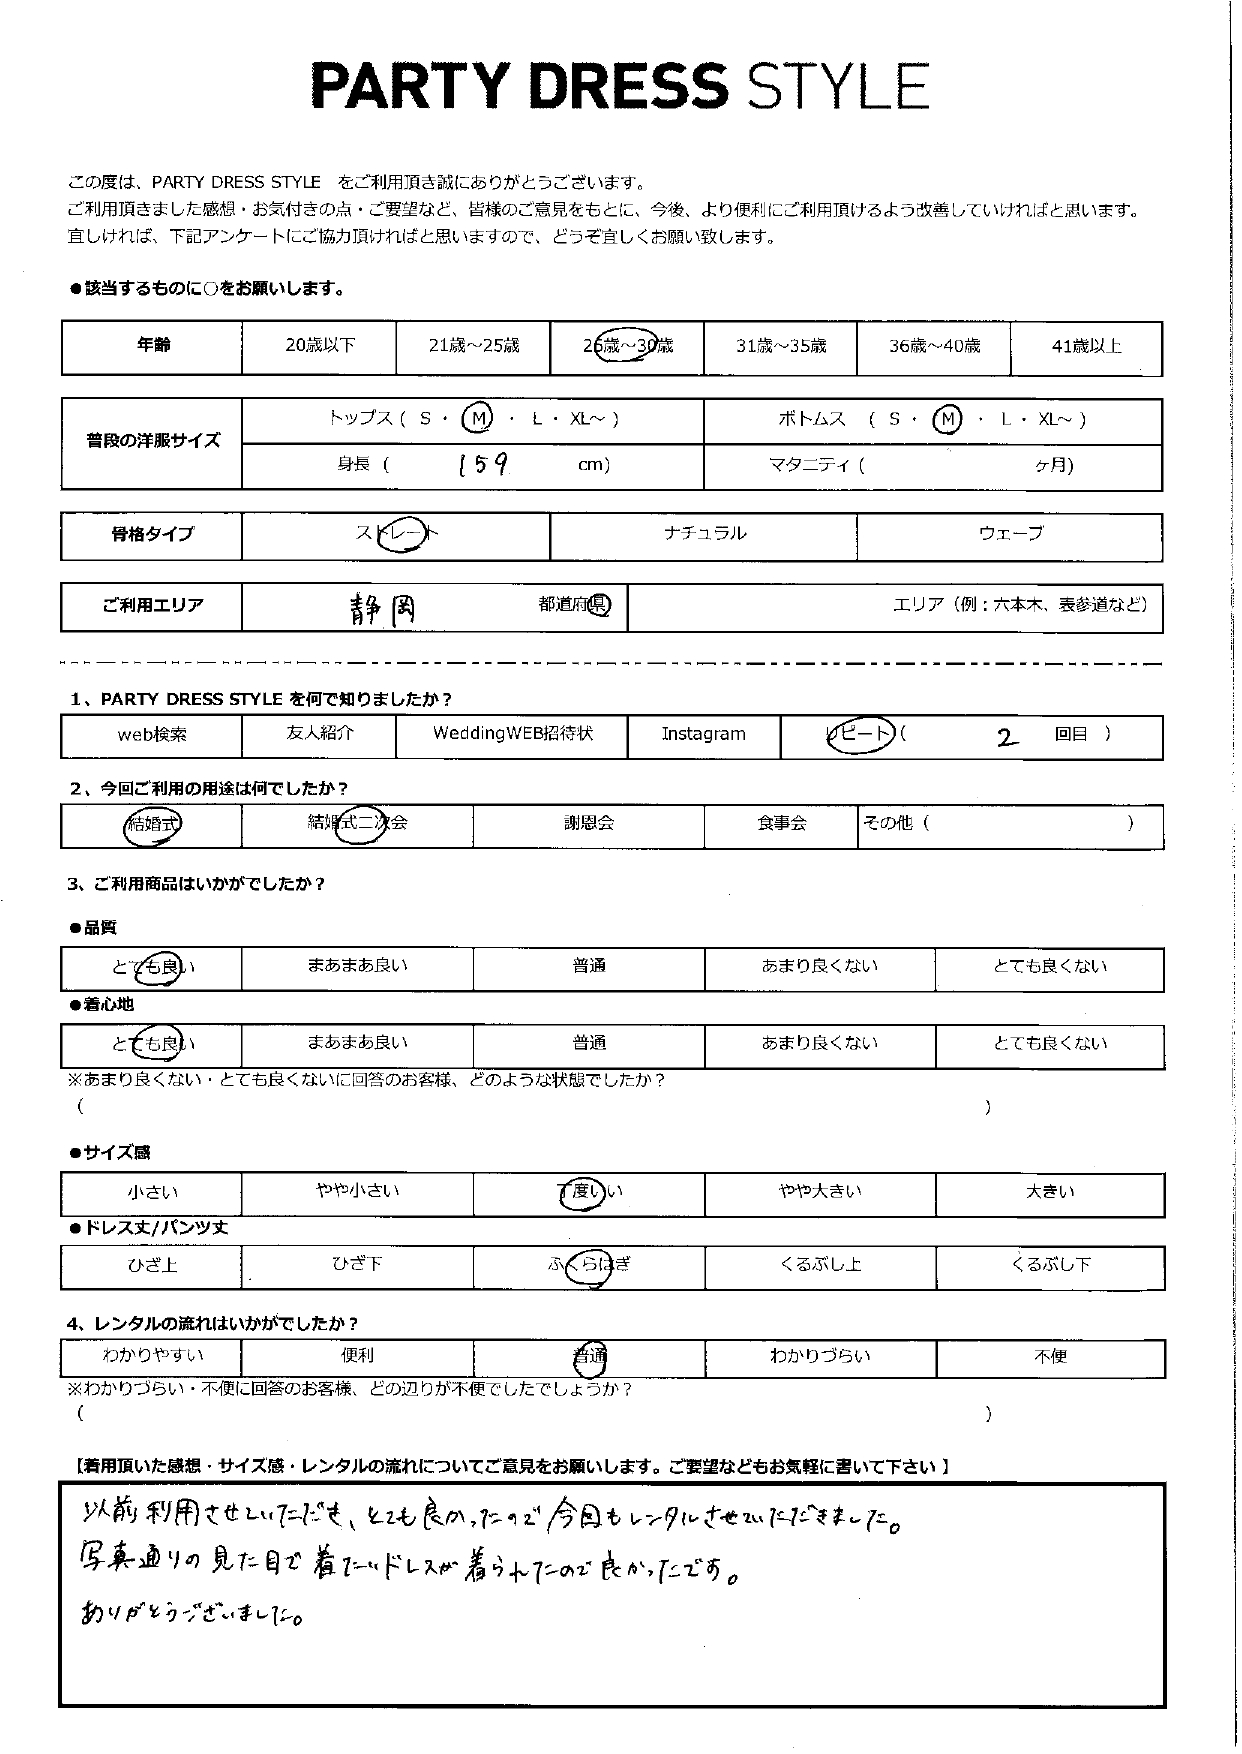 PARTY DRESS STYLE
この度は、PARTY DRESS STYLE をご利用頂き誠にありがとうございます。
ご利用頂きました感想・お気付きの点・ご要望など、皆様のご意見をもとに、今後、より便利にご利用頂けるよう改善していければと思います。
宜しければ、下記アンケートにご協力頂ければと思いますので、どうぞ宜しくお願い致します。
●該当するものに○をお願いします。
年齢 20歳以下 21歳～25歳 26歳～30歳 31歳～35歳 36歳～40歳 41歳以上
普段の洋服サイズ
トップス ( S ・ M ・ L ・ XL～ ) ボトムス ( S ・ M ・ L ・ XL～ )
身長 ( 159 cm) マタニティ ( ヶ月)
骨格タイプ ストレート ナチュラル ウェーブ
ご利用エリア 静岡 都道府県 エリア（例：六本木、表参道など）
1、PARTY DRESS STYLE を何で知りましたか？
web検索 友人紹介 WeddingWEB招待状 Instagram リピート ( 2 回目 )
2、今回ご利用の用途は何でしたか？
結婚式 結婚式二次会 謝恩会 食事会 その他 ( )
3、ご利用商品はいかがでしたか？
●品質
とても良い まあまあ良い 普通 あまり良くない とても良くない
●着心地
とても良い まあまあ良い 普通 あまり良くない とても良くない
※あまり良くない・とても良くないに回答のお客様、どのような状態でしたか？
( )
●サイズ感
小さい やや小さい 丁度いい やや大きい 大きい
●ドレス丈/パンツ丈
ひざ上 ひざ下 ふくらはぎ くるぶし上 くるぶし下
4、レンタルの流れはいかがでしたか？
わかりやすい 便利 普通 わかりづらい 不便
※わかりづらい・不便に回答のお客様、どの辺りが不便でしたでしょうか？
( )
【着用頂いた感想・サイズ感・レンタルの流れについてご意見をお願いします。ご要望などもお気軽に書いて下さい】
以前利用させていただき、とても良かったので今回もレンタルさせていただきました。
写真通りの見た目で着たいドレスが着られたので良かったです。
ありがとうございました。